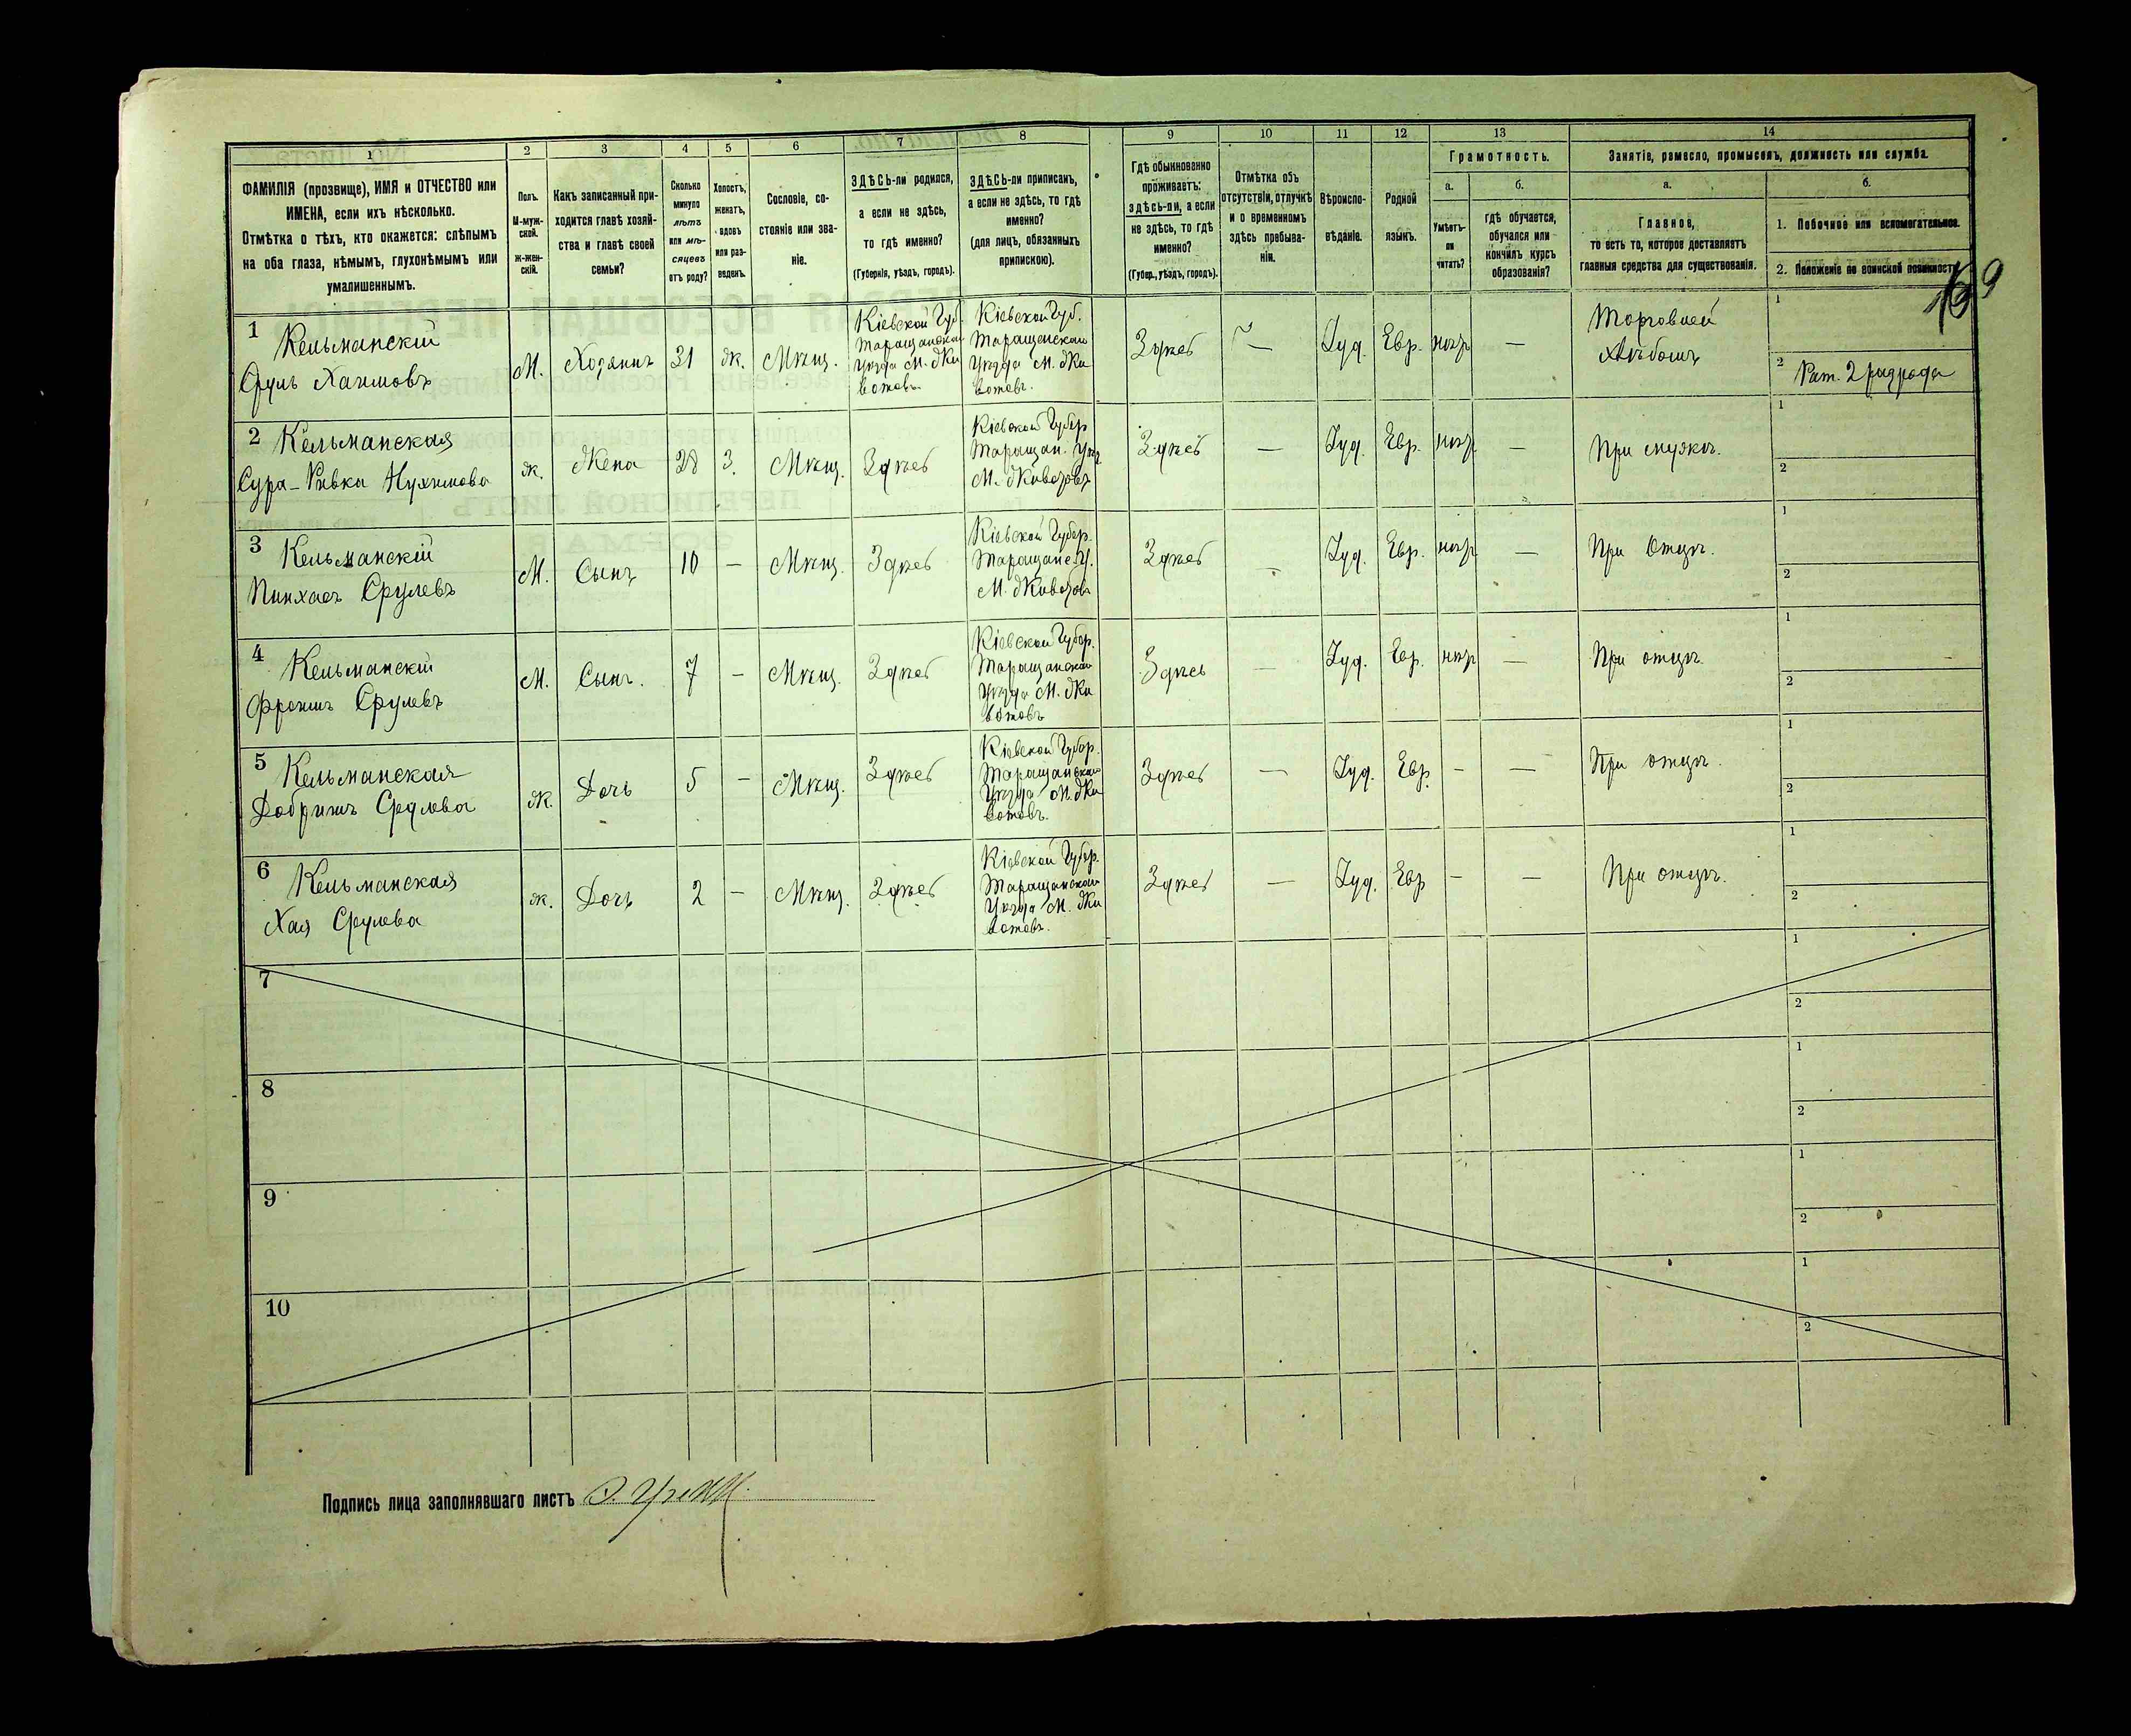 1 2 3 4 5 6 7 8 9 10 11 12 13 14
ФАМИЛІЯ (прозвище), ИМЯ и ОТЧЕСТВО или
ИМЕНА, если ихъ нѣсколько.
Отмѣтка о тѣхъ, кто окажется: слѣпымъ
на оба глаза, нѣмымъ, глухонѣмымъ или
умалишеннымъ.
Полъ.
М-муж-
ской.
Ж-жен-
скій.
Какъ записанный при-
ходится главѣ хозяй-
ства и главѣ своей
семьи?
Сколько
минуло
лѣтъ
или мѣ-
сяцевъ
отъ роду?
Холостъ,
женатъ,
вдовъ
или раз-
веденъ.
Сословіе, со-
стояніе или зва-
ніе.
ЗДѢСЬ-ли родился,
а если не здѣсь,
то гдѣ именно?
(Губернія, уѣздъ, городъ).
ЗДѢСЬ-ли приписанъ,
а если не здѣсь, то гдѣ
именно?
(для лицъ, обязанныхъ
припискою).
Гдѣ обыкновенно
проживаетъ:
здѣсь-ли, а если
не здѣсь, то гдѣ
именно?
(Губер., уѣздъ, городъ).
Отмѣтка объ
отсутствіи, отлучкѣ
и о временномъ
здѣсь пребыва-
ніи.
Вѣроиспо-
вѣданіе.
Родной
языкъ.
Грамотность.
а.
Умѣетъ-
ли
читать?
б.
гдѣ обучается,
обучался или
кончилъ курсъ
образованія?
Занятіе, ремесло, промыселъ, должность или служба.
а.
Главное,
то есть то, которое доставляетъ
главныя средства для существованія.
б.
1. Побочное или вспомогательное.
2. Положеніе по воинской повинности
1
Кельманскій
Сруль Хаимовъ
М.
Хозяинъ
31
ж.
Мѣщ.
Кіевской Губ.
Таращанской
Уѣзда М. Жи
вотовъ.
Кіевской Губ.
Таращанской
Уѣзда М. Жи
вотовъ.
Здѣсь
—
Іуд.
Евр.
нѣтъ
—
Торговлей
хлѣбомъ
1
2 Рат. 2 разряда
2
Кельманская
Сура-Ривка Нухимова
Ж.
Жена
28
З.
Мѣщ.
Здѣсь
Кіевской Губер
Таращан. Уѣз
М. Животовъ
Здѣсь
—
Іуд.
Евр.
нѣтъ
—
При мужѣ.
1
2
3
Кельманскій
Пинхасъ Срулевъ
М.
Сынъ
10
—
Мѣщ.
Здѣсь
Кіевской Губер.
Таращанс. У.
М. Животовъ
Здѣсь
—
Іуд.
Евр.
нѣтъ
—
При Отцѣ.
1
2
4
Кельманскій
Фроимъ Срулевъ
М.
Сынъ.
7
—
Мѣщ.
Здѣсь
Кіевской Губер.
Таращанской
Уѣзда М. Жи
вотовъ
Здѣсь
—
Іуд.
Евр.
нѣтъ
—
При отцѣ.
1
2
5
Кельманская
Срулева
Ж.
Дочь
5
—
Мѣщ.
Здѣсь
Кіевской Губер.
Таращанской
Уѣзда М. Жи
вотовъ.
Здѣсь
—
Іуд.
Евр
—
—
При отцѣ.
1
2
6
Кельманская
Хая Срулева
Ж.
Дочь
2
—
Мѣщ.
Здѣсь
Кіевской Губер.
Таращанской
Уѣзда М. Жи
вотовъ.
Здѣсь
—
Іуд.
Евр
—
—
При отцѣ.
1
2
7
1
2
8
1
2
9
1
2
10
1
2
Подпись лица заполнявшаго листъ